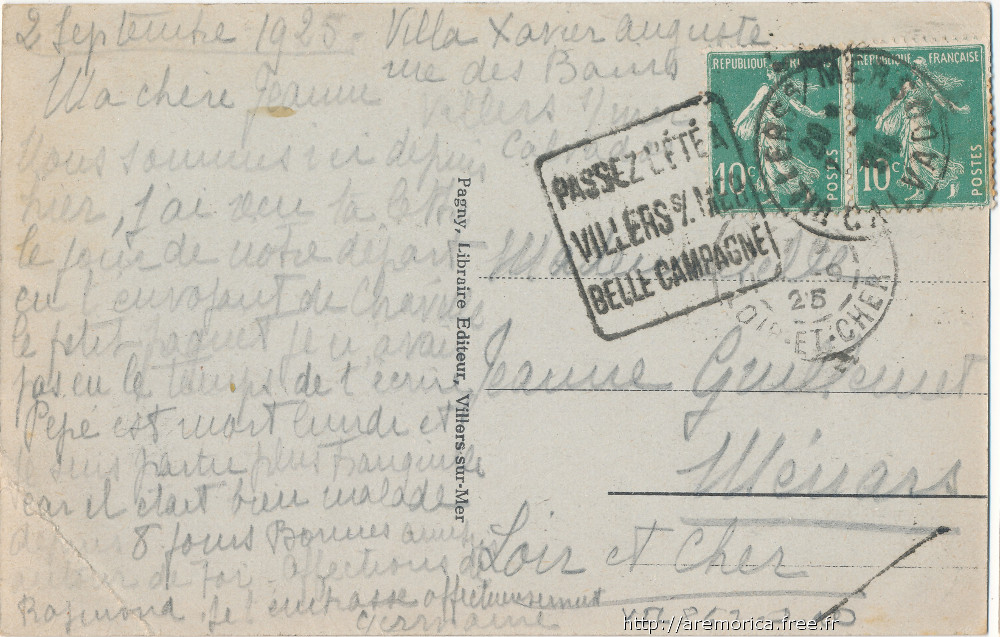 2 Septembre 1925 - Villa Xavier auguste
rue des Bains
Ma chère Jeanne Villers s/mer
Calvados
Nous sommes ici depuis
hier, j'ai reçu ta lettre
le jour de notre départ
en t'envoyant de
le petit paquet je n'avais
pas eu le temps de t'écrire
Pépé est mort lundi et
suis partie plus tranquille
car il était bien malade
depuis 8 jours Bonnes amitiés
autour de toi. Affections de
Raymond. Je t'embrasse affectueusement
Germaine
Pagny, Libraire Editeur, Villers-sur-Mer
REPUBLIQUE FRANÇAISE
10c
POSTES
REPUBLIQUE FRANÇAISE
10c
POSTES
VILLERS S/ MER
CALVADOS
PASSEZ L'ÉTÉ A
VILLERS S/. MER
BELLE CAMPAGNE
25
LOIR-ET-CHER
Mademoiselle
Jeanne
Ménars
Loir et Cher
http://aremorica.free.fr